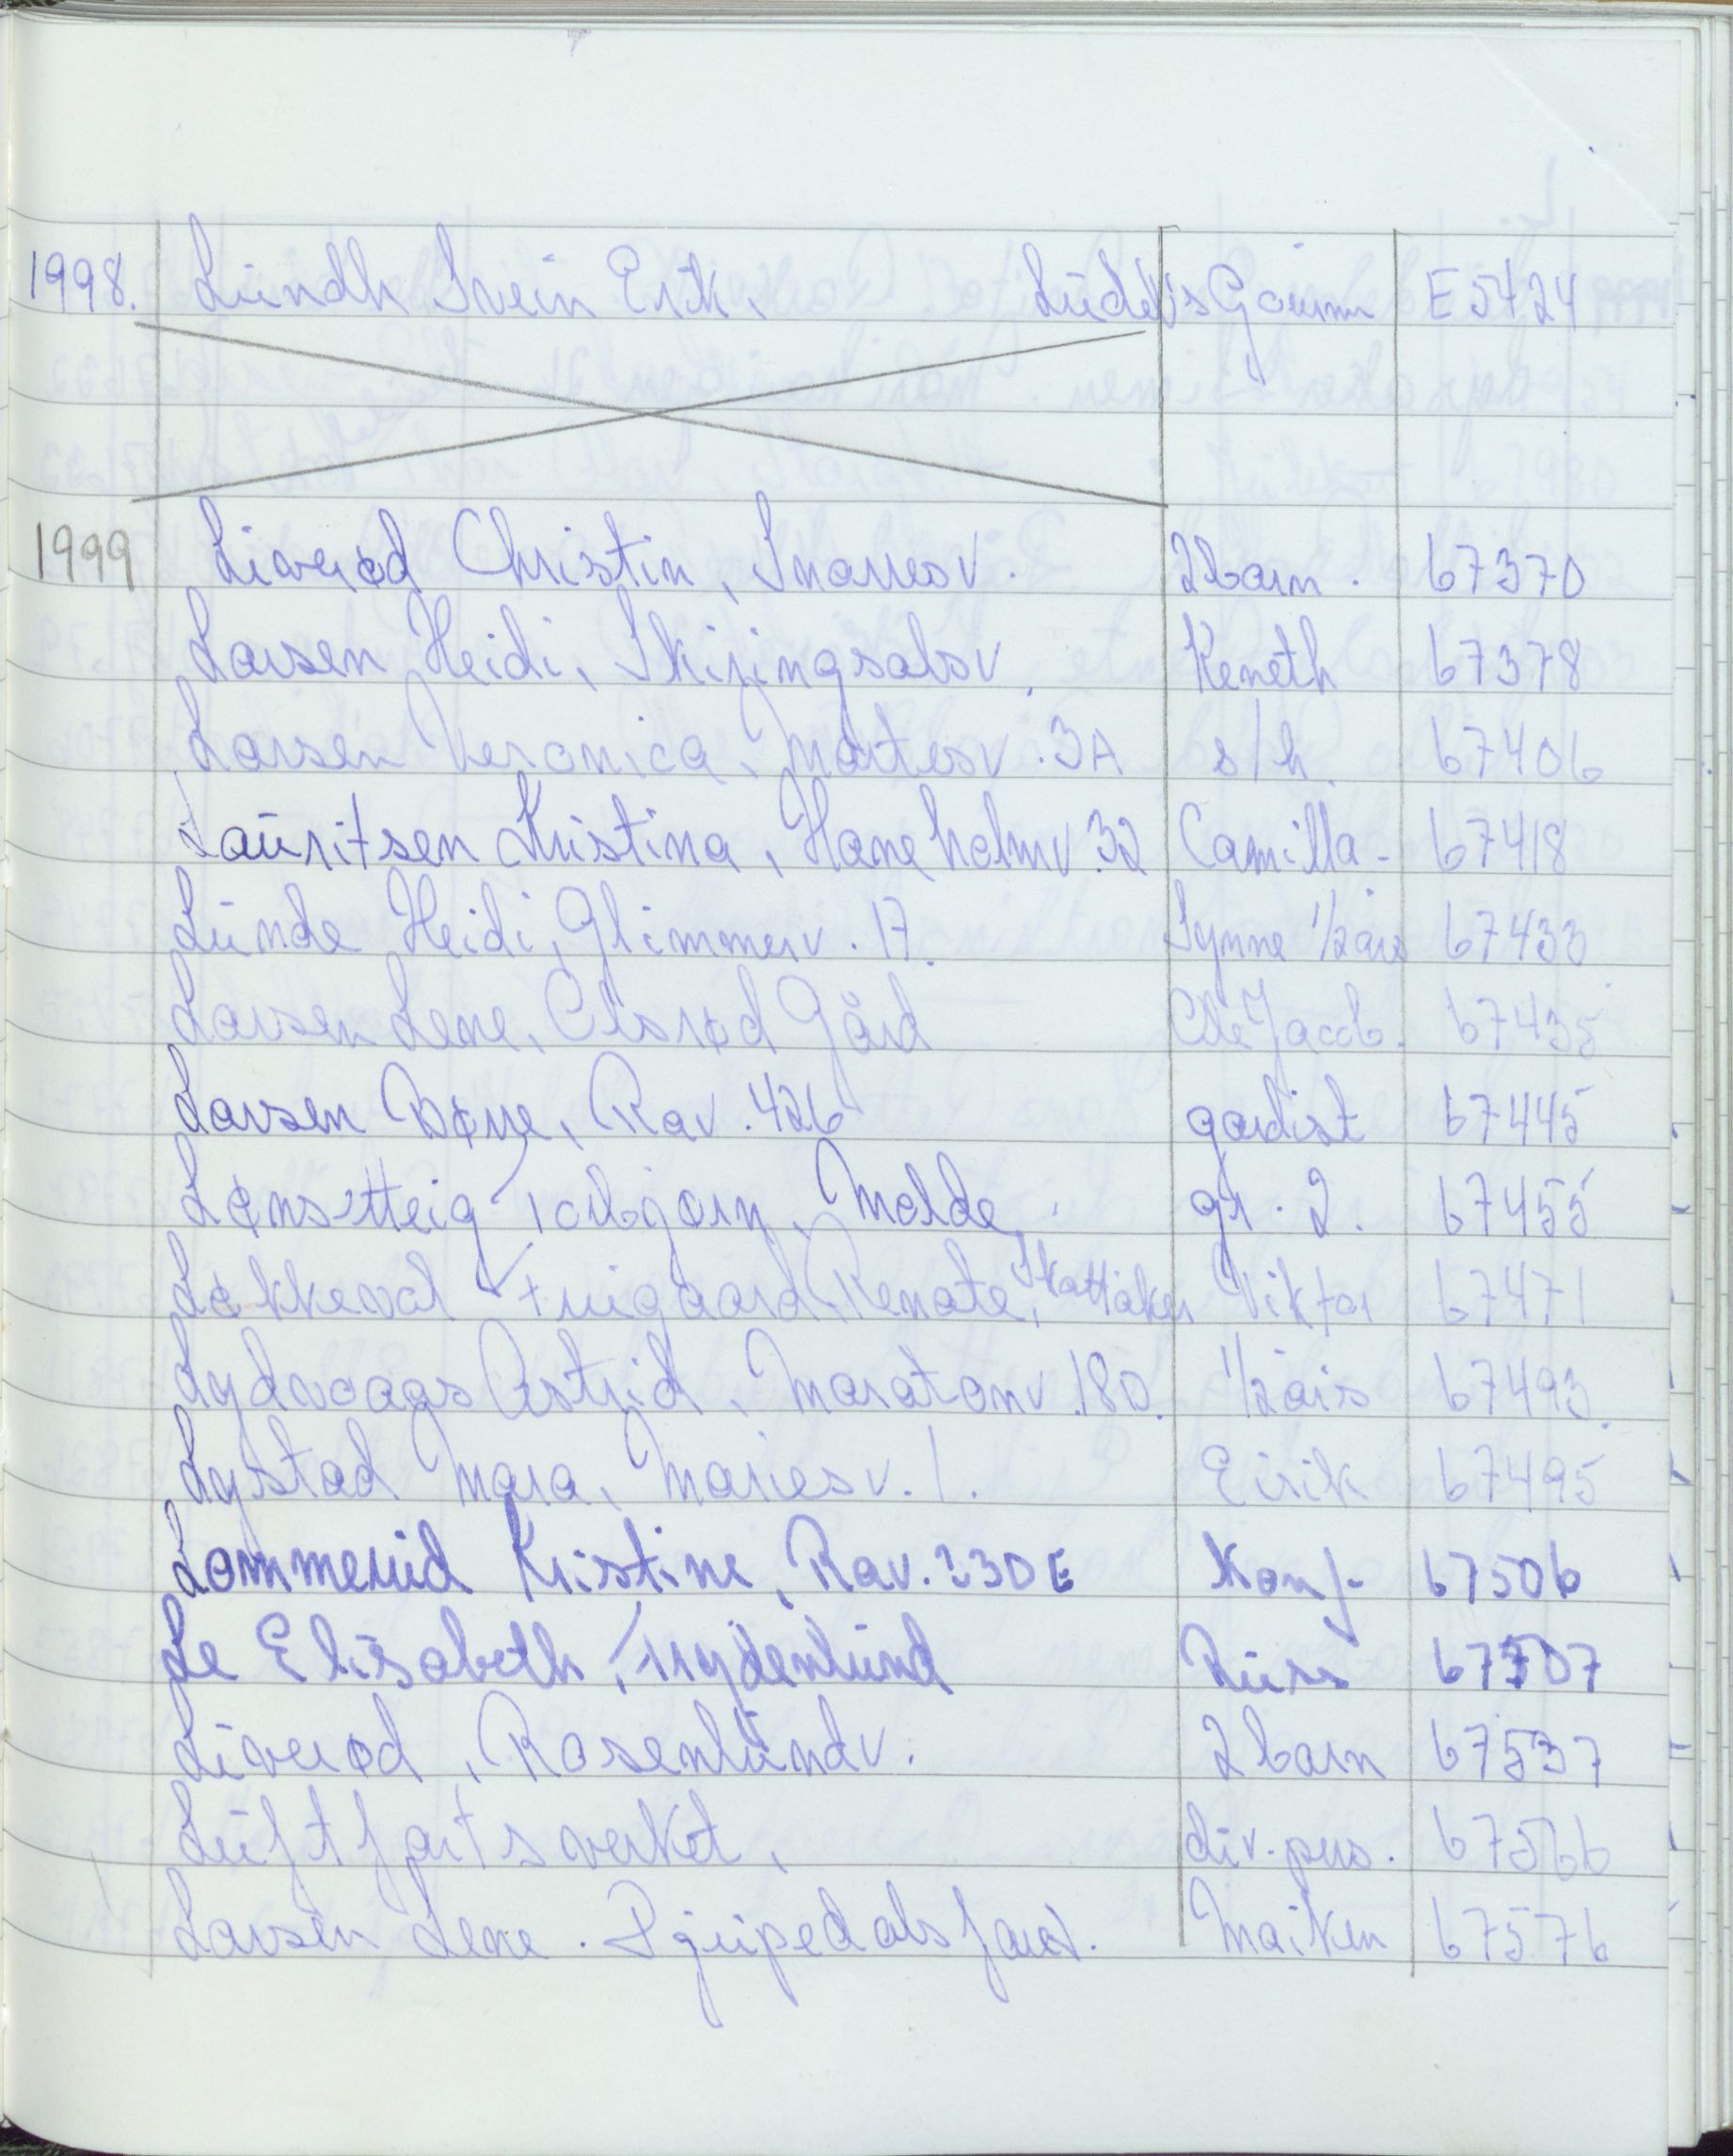 1998. Lundh Svein Erik, Ludvis Gaumn E5424
1999 Liverød Christin, Snarresv. 2barn. 67370
Larsen Heidi, Skiringsalsv, Keneth 67378
Larsen Veronica, Mårtesv. 3A s/h. 67406
Lauritsen Kristina, Haneholmv. 32 Camilla - 67418
Lunde Heidi, Glimmerv. 17. Synne 1/2 års 67433
Larsen Lene, Olsrød Gård Ole Jacob. 67435
Larsen Børre, Rav. 426 gardist 67445
Lønsetteig Torbjørn, Molde, gr. 2. 67455
Løkkevol Furigaard Renate, Skattåker Viktor 67471
Lydvoags Astrid, Maratonv. 180. 1/2 års 67493.
Lystad Mara, Mariesv. 1. Eirik 67495
Lommerud Kristine, Rav. 230 E Konf- 67506
Le Elisabeth, Frydenlund Russ 67507
Liverød, Rosenlundv. 2barn 67537
Luftfartsverket, div. pers. 67566
Larsen Lene. Djupedalsfard. Maiken 67576